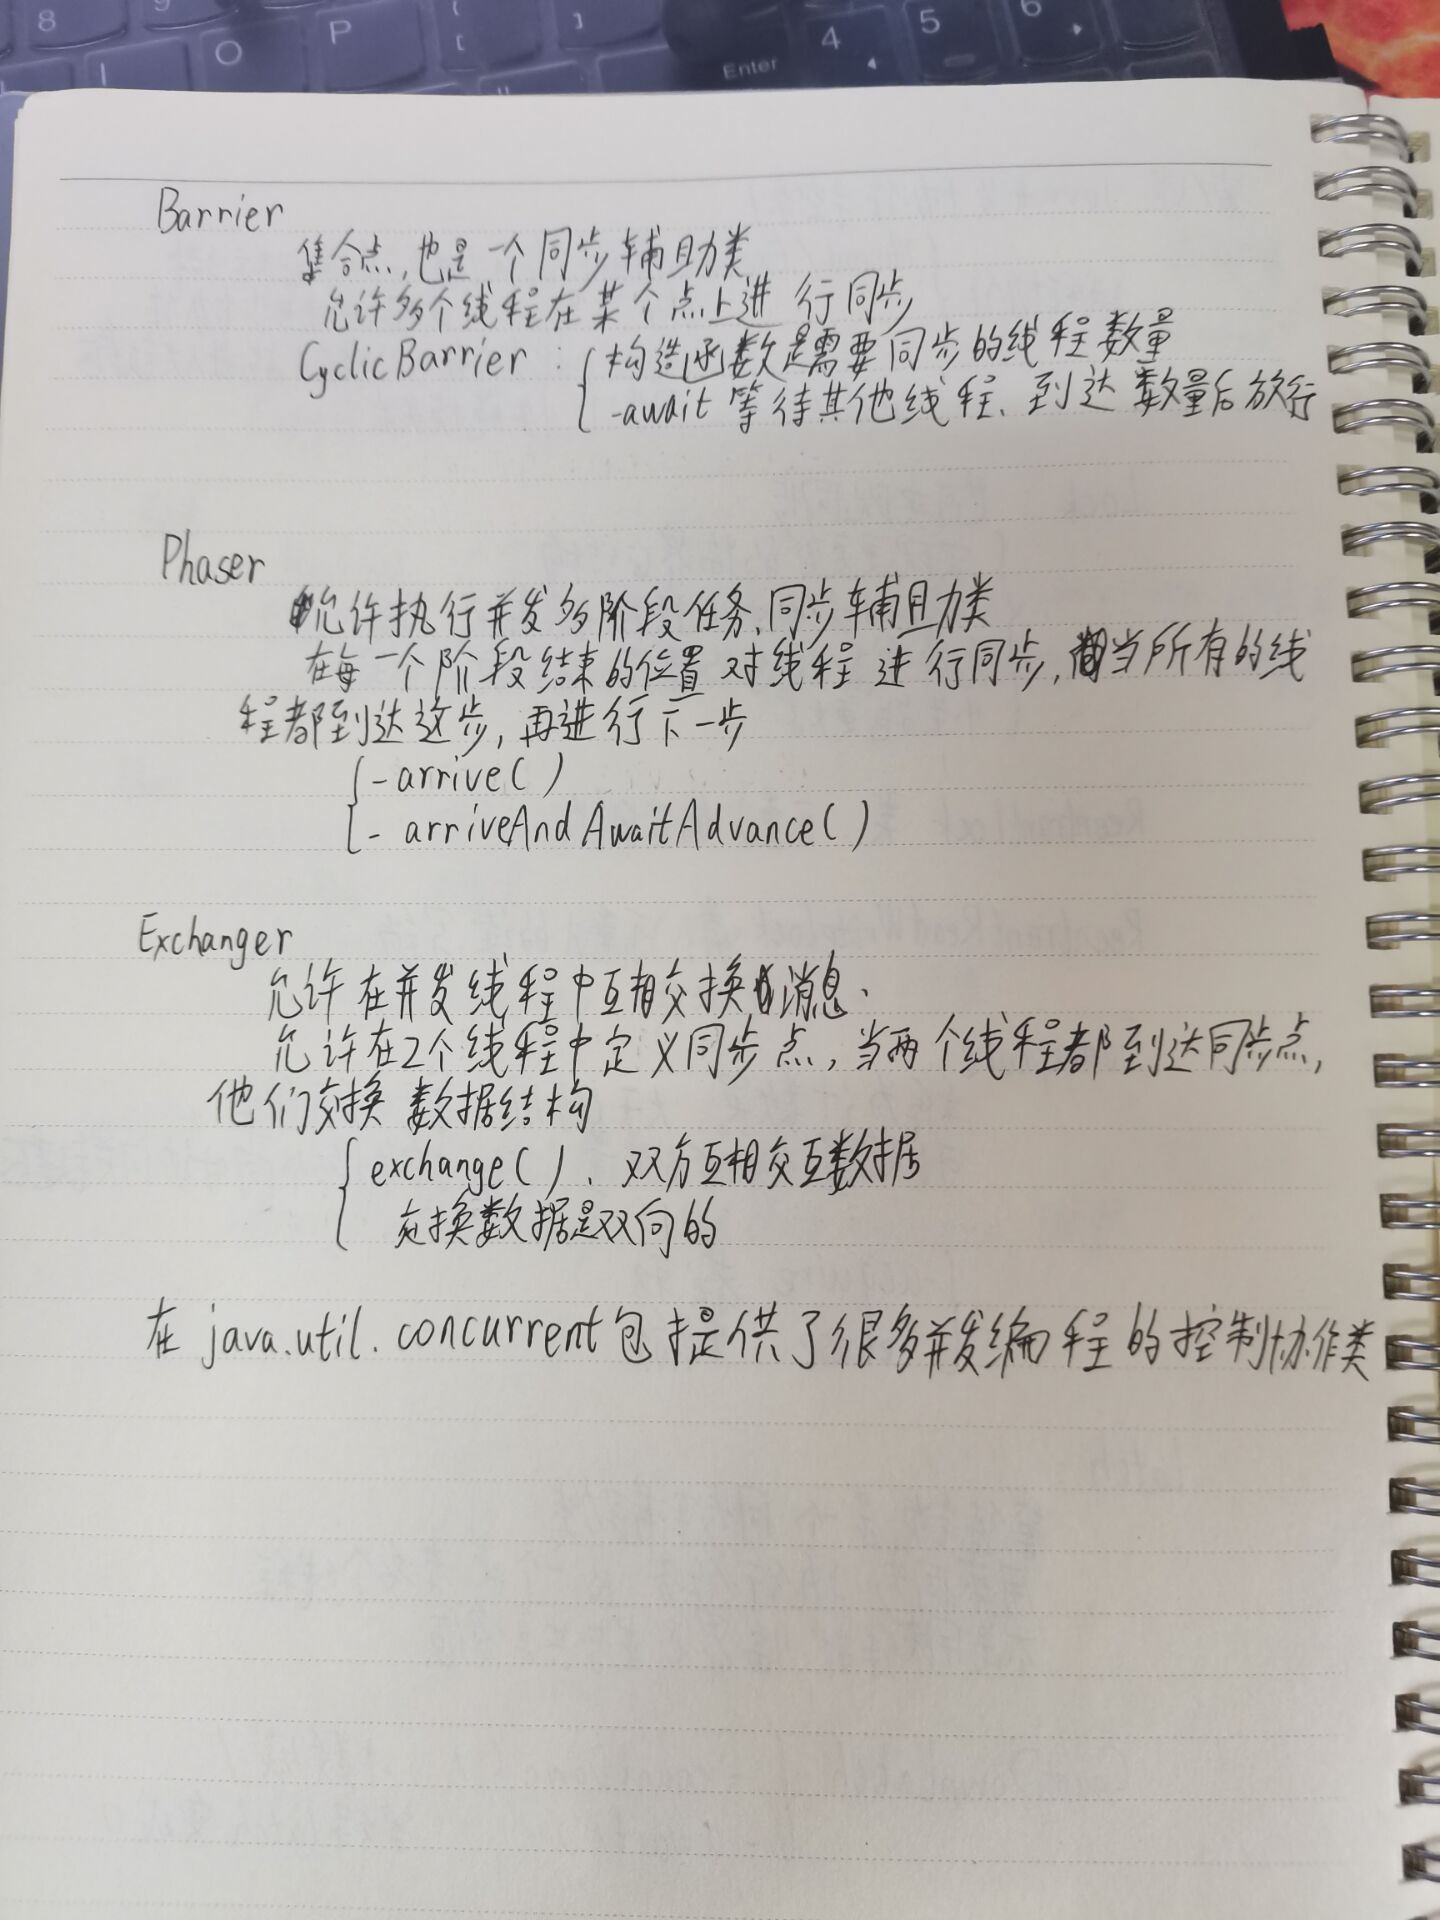 8 9 O P [ ] Enter 4 5 6
Barrier
集合点,也是一个同步辅助类
允许多个线程在某个点上进行同步
CyclicBarrier : { 构造函数是需要同步的线程数量
-await 等待其他线程、到达数量后放行
Phaser
允许执行并发多阶段任务、同步辅助类
在每一个阶段结束的位置对线程进行同步,当所有的线
程都到达这步,再进行下一步
{ - arrive()
- arriveAndAwaitAdvance()
Exchanger
允许在并发线程中互相交换消息、
允许在2个线程中定义同步点,当两个线程都到达同步点,
他们交换数据结构
{ exchange()、双方互相交互数据
交换数据是双向的
在java.util.concurrent包提供了很多并发编程的控制协作类